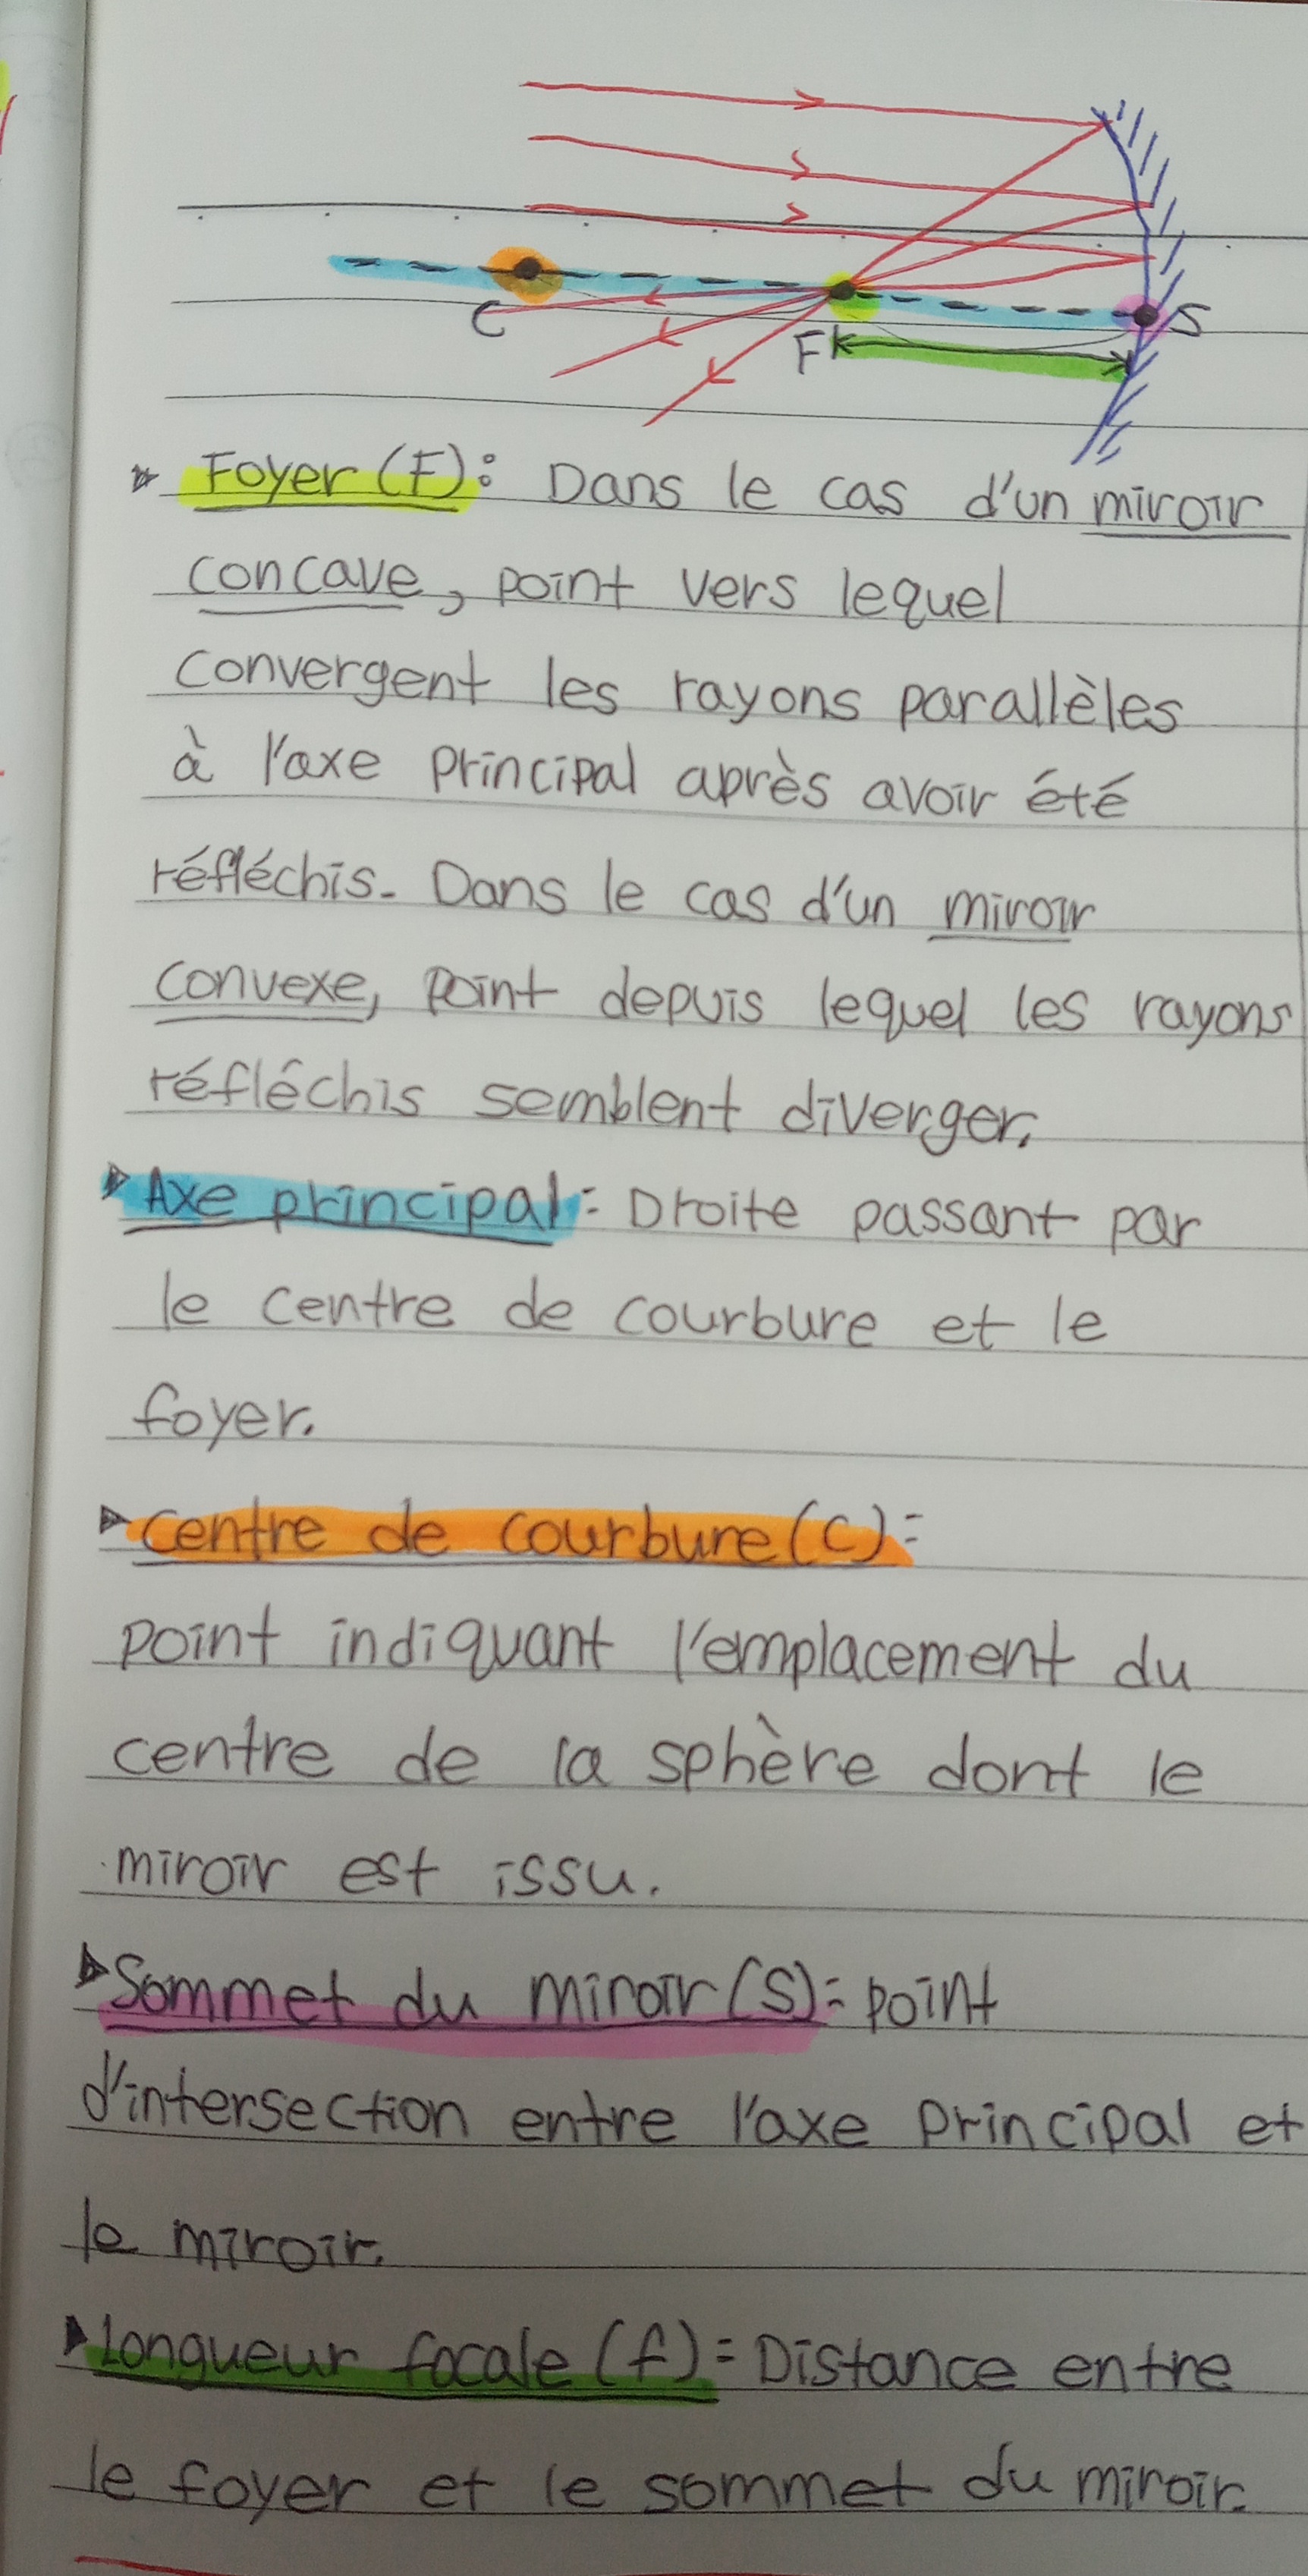 C
F
S
Foyer (F): Dans le cas d'un miroir
concave, point vers lequel
convergent les rayons parallèles
à l'axe principal après avoir été
réfléchis. Dans le cas d'un miroir
convexe, point depuis lequel les rayons
réfléchis semblent diverger.
Axe principal: Droite passant par
le centre de courbure et le
foyer.
centre de courbure (C):
point indiquant l'emplacement du
centre de la sphère dont le
miroir est issu.
Sommet du miroir (S): point
d'intersection entre l'axe principal et
le miroir.
Longueur focale (f): Distance entre
le foyer et le sommet du miroir.